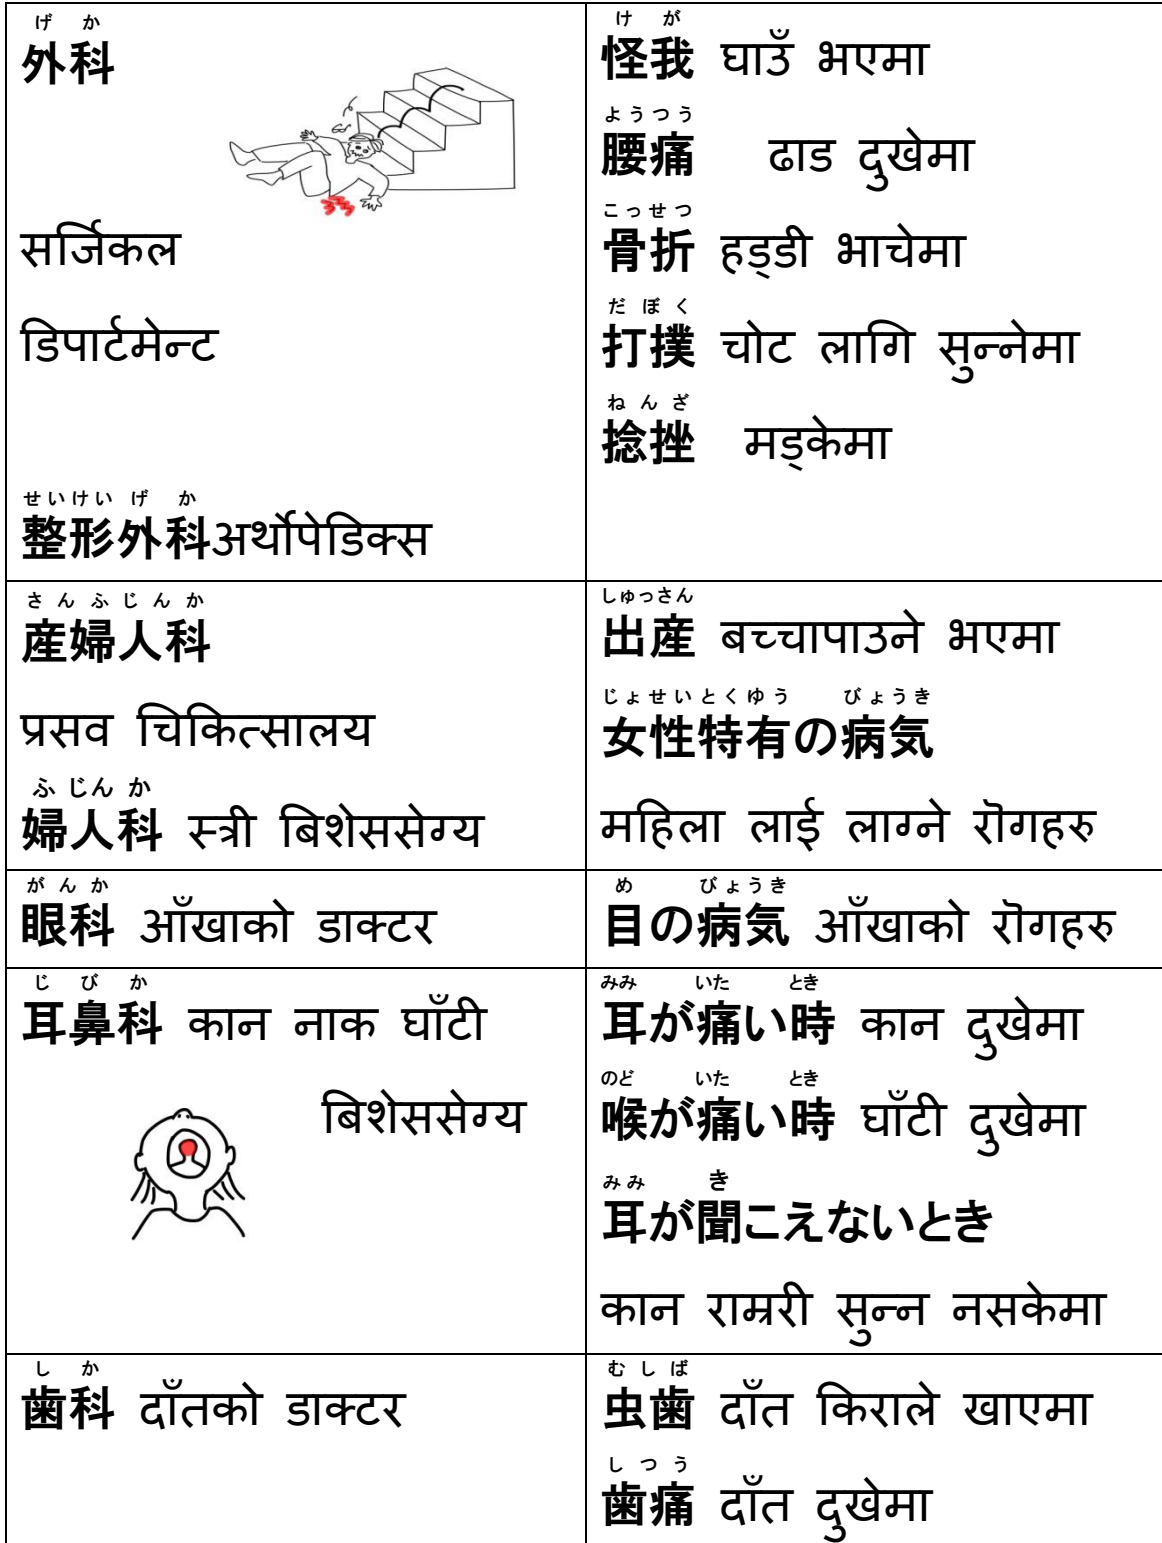 げ か
外科
सर्जिकल
डिपार्टमेन्ट
せいけい げ か
整形外科अर्थोपेडिक्स
け が
怪我 घाउँ भएमा
ようつう
腰痛 ढाड दुखेमा
こっせつ
骨折 हड्डी भाचेमा
だ ぼ く
打撲 चोट लागि सुन्नेमा
ね ん ざ
捻挫 मड्केमा
さ ん ふ じ ん か
産婦人科
प्रसव चिकित्सालय
ふ じん か
婦人科 स्त्री बिशेससेग्य
しゅっさん
出産 बच्चापाउने भएमा
じょせいとくゆう びょうき
女性特有の病気
महिला लाई लाग्ने रॊगहरु
が ん か
眼科 आँखाको डाक्टर
め びょうき
目の病気 आँखाको रॊगहरु
じ び か
耳鼻科 कान नाक घाँटी
बिशेससेग्य
みみ いた とき
耳が痛い時 कान दुखेमा
のど いた とき
喉が痛い時 घाँटी दुखेमा
みみ き
耳が聞こえないとき
कान राम्ररी सुन्न नसकेमा
し か
歯科 दाँतको डाक्टर
む し ば
虫歯 दाँत किराले खाएमा
し つ う
歯痛 दाँत दुखेमा